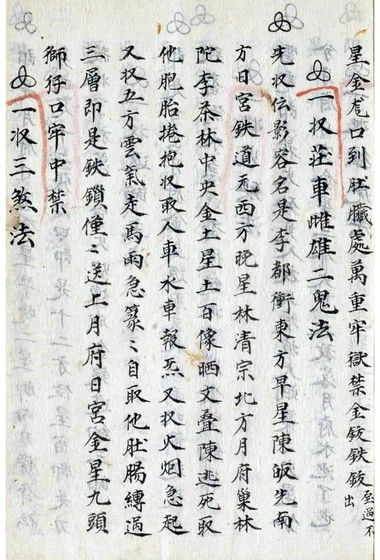 星金尨口到肚臟處萬重牢獄禁金鈘鉄鈘至過不出
一収莊車雌雄二鬼法
先収伝影容名是李都衝東方早星陳皈先南
方日宮鉄道元西方晚星林清宗北方月府巢林
陀李茶林中央金土星土百像晒丈叠陳逃死取
他肥胎捲抱収取人車水車報炁又収火烟急起
又収五方雲氣走馬雨急篆〻自取他肚腸縛過
三層即是鉄鎖僮〻送上月府日宮金星九頭
獅仔口牢中禁
一収三煞法